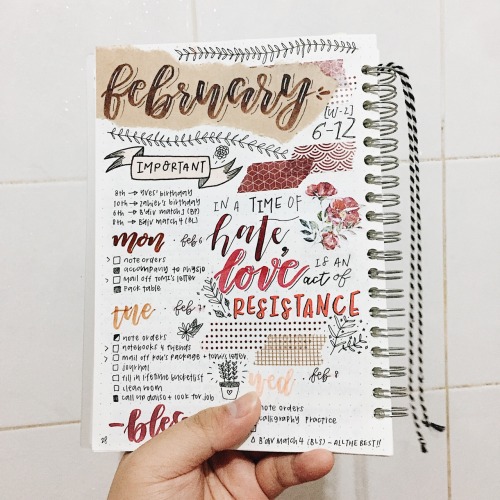 february
[W-2]
6-12
IMPORTANT
8th → Yves' birthday
10th → Zaher's birthday
6th → B'div match 3 (BP)
8th → B'div match 4 (BL)
IN A TIME OF
hate,
love
IS AN
act of
RESISTANCE
mon · feb 6
note orders
accompany to physio
mail off Tomz's letter
pack table
tue · feb 7
note orders
notebooks 4 friends
mail off package + letter
journal
fill in lifetime bucketlist
clean room
call + look for job
wed · feb 8
note orders
calligraphy practice
B'div match 4 (BLS) - ALL THE BEST!!